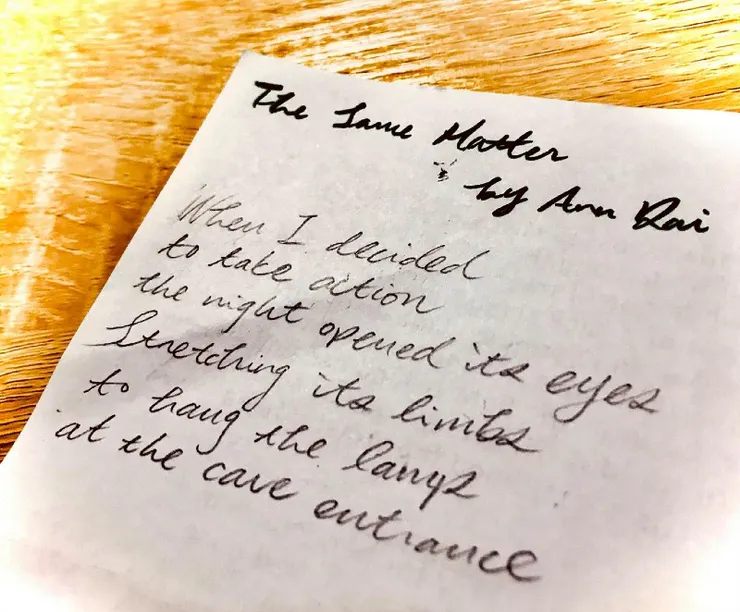 The Same Matter
by Ann Rai
When I decided
to take action
the night opened its eyes
Stretching its limbs
to hang the lamps
at the cave entrance